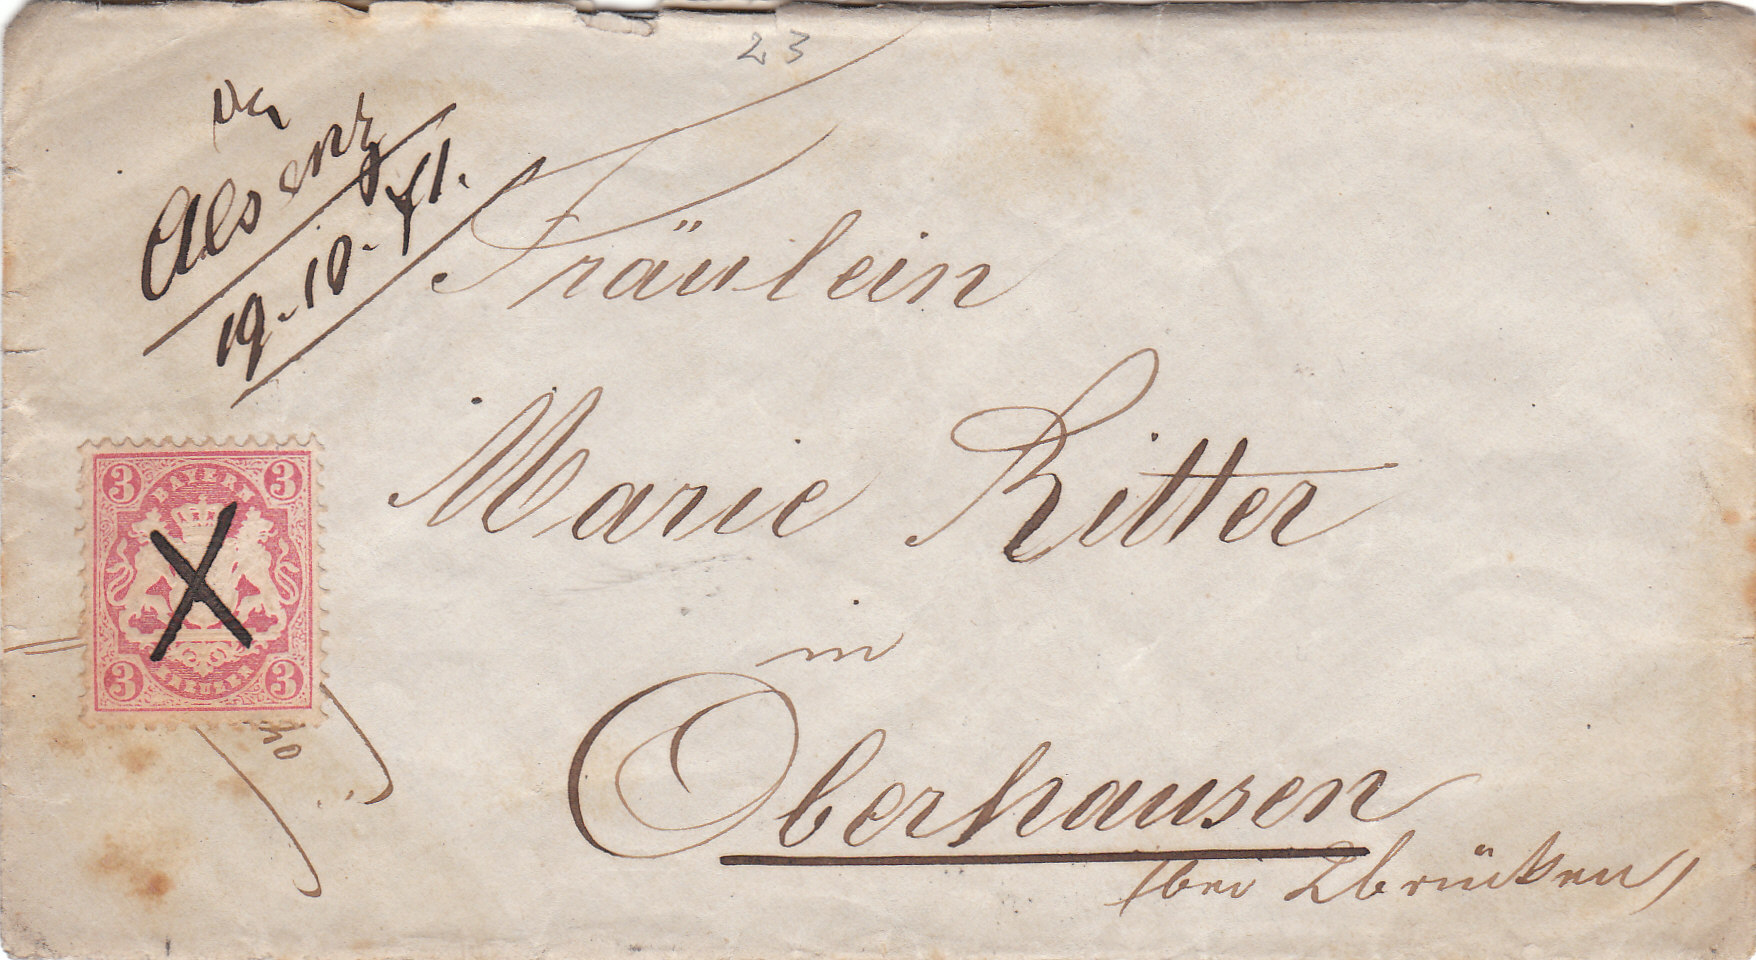 23
Alsenz
19.10.71.
Fräulein
Marie Ritter
in
Oberhausen
(bei Zbrücken)
3 3
BAYERN
3 3
KREUZER